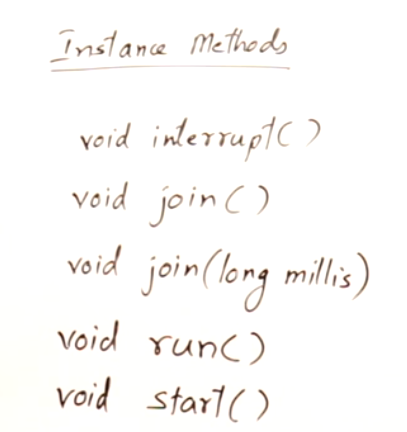 Instance Methods
void interrupt()
void join()
void join(long millis)
void run()
void start()